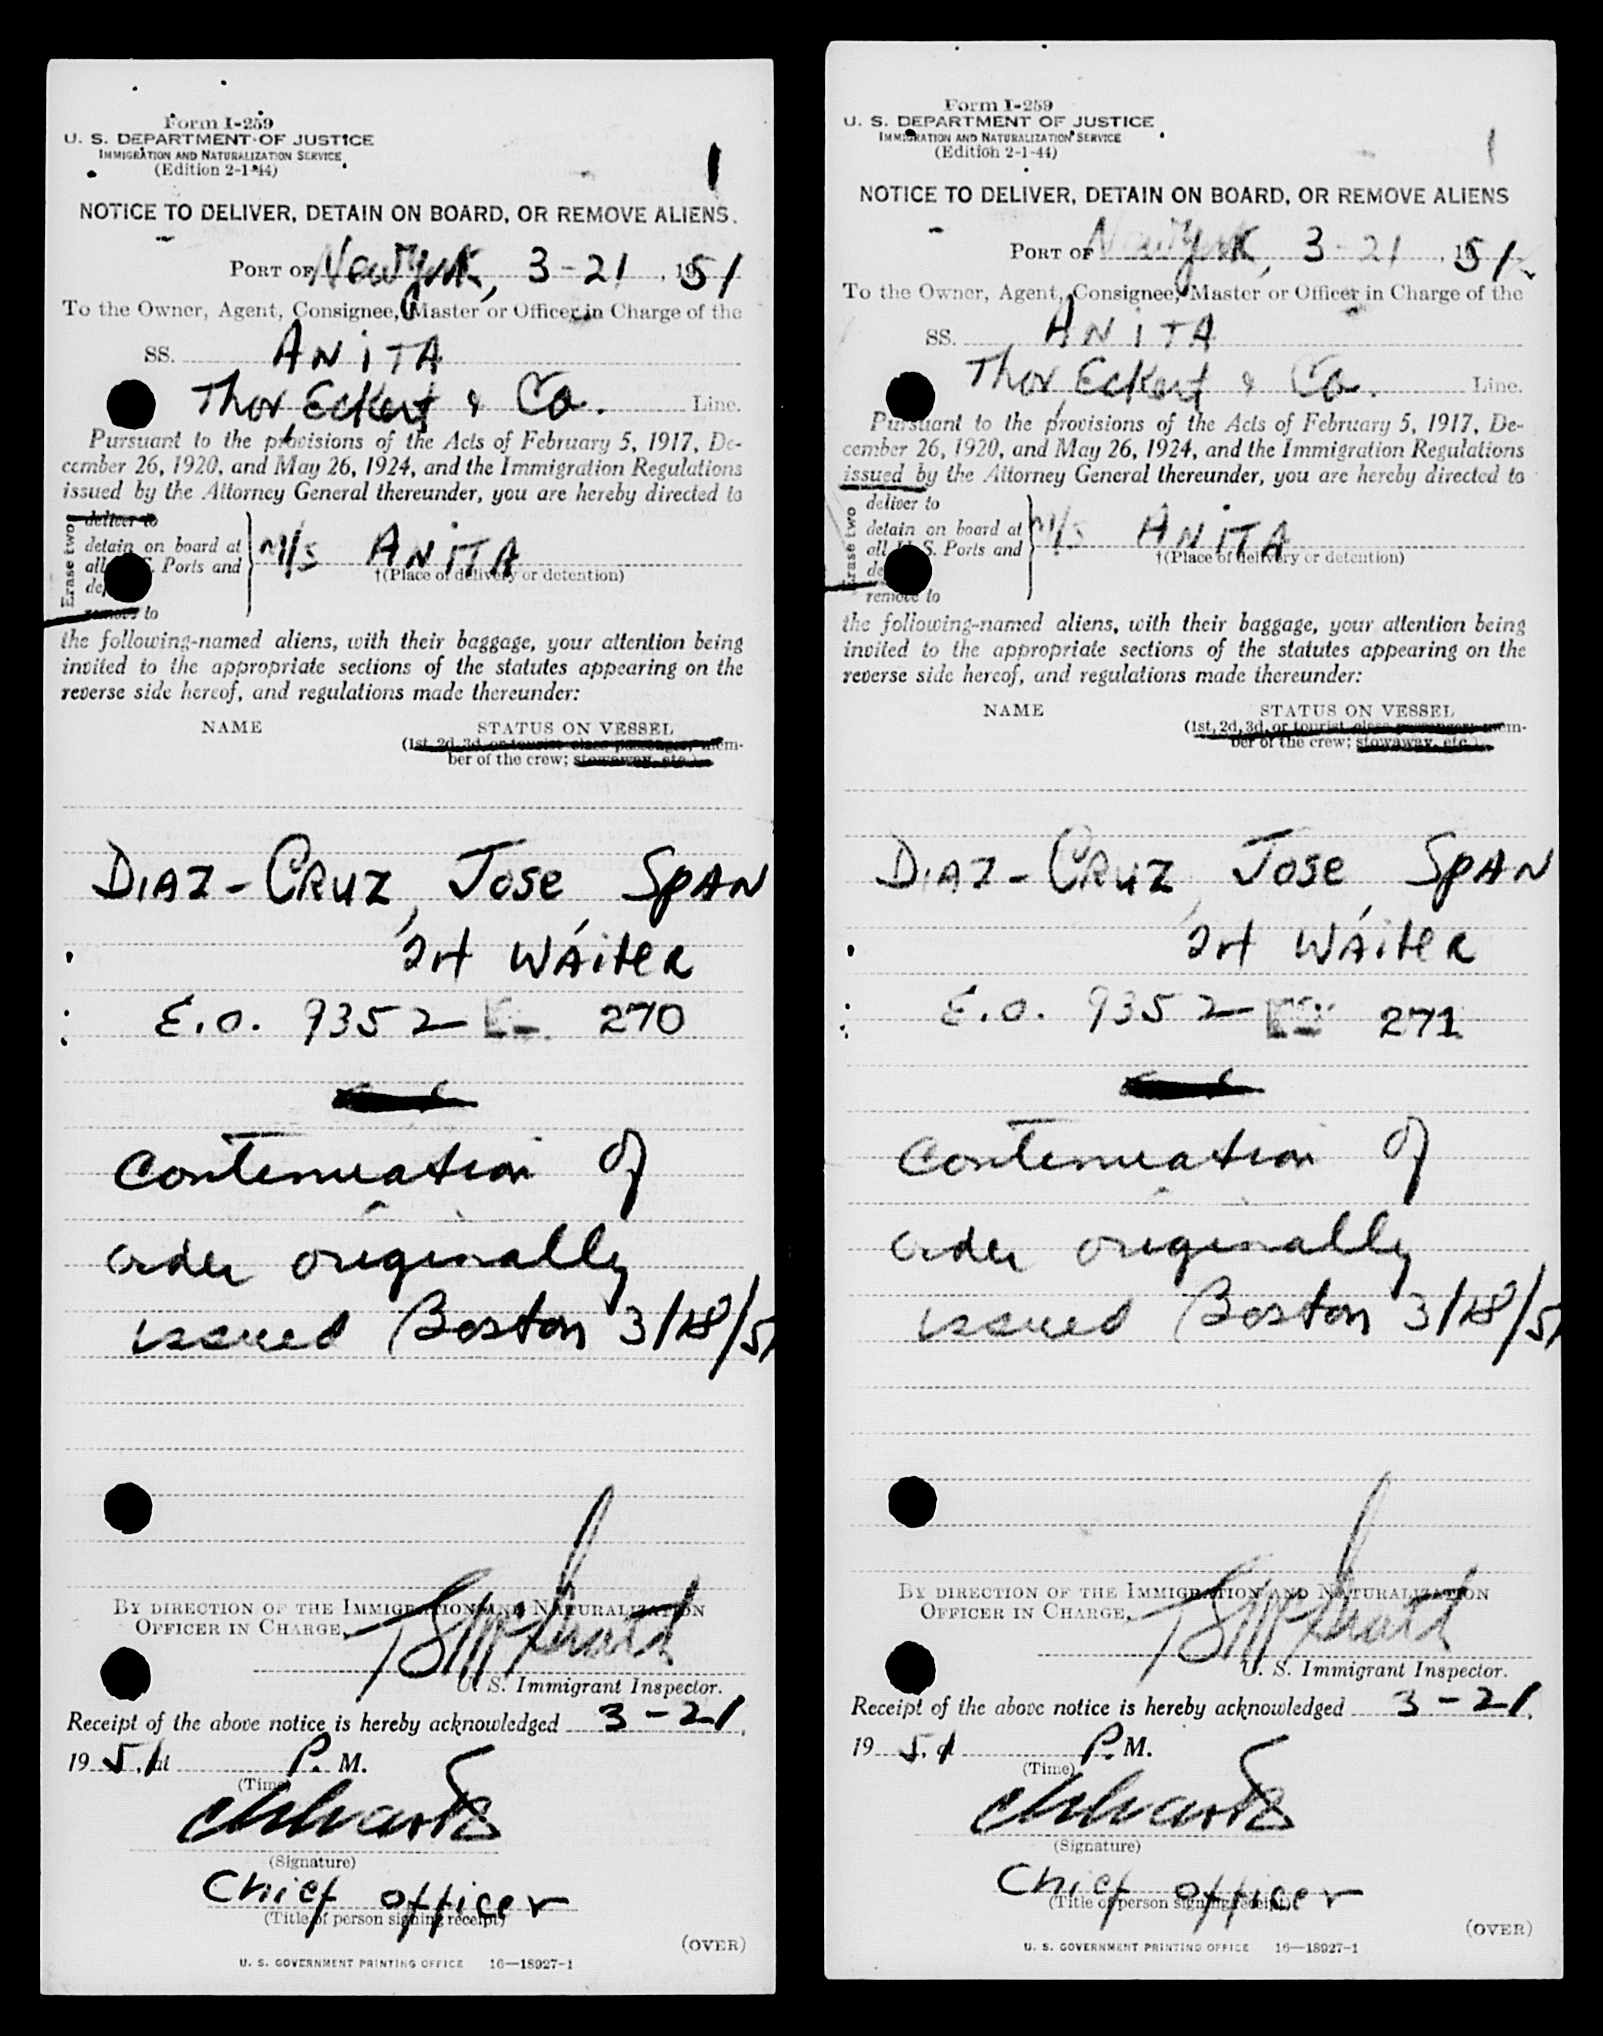 Form I-259
U. S. DEPARTMENT OF JUSTICE
IMMIGRATION AND NATURALIZATION SERVICE
(Edition 2-1-44)
1
NOTICE TO DELIVER, DETAIN ON BOARD, OR REMOVE ALIENS
PORT OF New York, 3-21, 1951
To the Owner, Agent, Consignee, Master or Officer in Charge of the
SS. ANITA
Thor Eckert & Co. Line.
Pursuant to the provisions of the Acts of February 5, 1917, De-
cember 26, 1920, and May 26, 1924, and the Immigration Regulations
issued by the Attorney General thereunder, you are hereby directed to
Erase two
deliver to
detain on board at
all U. S. Ports and
remove to
M/S ANITA
†(Place of delivery or detention)
the following-named aliens, with their baggage, your attention being
invited to the appropriate sections of the statutes appearing on the
reverse side hereof, and regulations made thereunder:
NAME STATUS ON VESSEL
(1st, 2d, 3d, or tourist class passenger; mem-
ber of the crew; stowaway, etc.)
DIAZ-CRUZ, JOSE SPAN
WAITER
E.O. 9352 270
Continuation of
order originally
issued Boston 3/18/51
BY DIRECTION OF THE IMMIGRATION AND NATURALIZATION
OFFICER IN CHARGE,
U. S. Immigrant Inspector.
Receipt of the above notice is hereby acknowledged 3-21,
1951, at P. M.
(Time)
(Signature)
Chief officer
(Title of person signing receipt)
(OVER)
U. S. GOVERNMENT PRINTING OFFICE 16—18927-1
Form I-259
U. S. DEPARTMENT OF JUSTICE
IMMIGRATION AND NATURALIZATION SERVICE
(Edition 2-1-44)
1
NOTICE TO DELIVER, DETAIN ON BOARD, OR REMOVE ALIENS
PORT OF New York, 3-21, 1951
To the Owner, Agent, Consignee, Master or Officer in Charge of the
SS. ANITA
Thor Eckert & Co. Line.
Pursuant to the provisions of the Acts of February 5, 1917, De-
cember 26, 1920, and May 26, 1924, and the Immigration Regulations
issued by the Attorney General thereunder, you are hereby directed to
Erase two
deliver to
detain on board at
all U. S. Ports and
remove to
M/S ANITA
†(Place of delivery or detention)
the following-named aliens, with their baggage, your attention being
invited to the appropriate sections of the statutes appearing on the
reverse side hereof, and regulations made thereunder:
NAME STATUS ON VESSEL
(1st, 2d, 3d, or tourist class passenger; mem-
ber of the crew; stowaway, etc.)
DIAZ-CRUZ, JOSE SPAN
WAITER
E.O. 9352 271
Continuation of
order originally
issued Boston 3/18/51
BY DIRECTION OF THE IMMIGRATION AND NATURALIZATION
OFFICER IN CHARGE,
U. S. Immigrant Inspector.
Receipt of the above notice is hereby acknowledged 3-21,
1951, at P. M.
(Time)
(Signature)
Chief officer
(Title of person signing receipt)
(OVER)
U. S. GOVERNMENT PRINTING OFFICE 16—18927-1